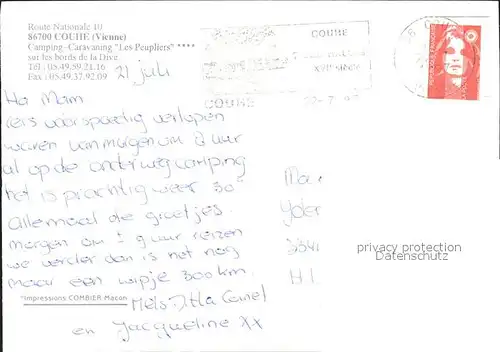 Route Nationale 10
86700 COUHE (Vienne)
Camping-Caravaning "Les Peupliers" ****
sur les bords de la Dive
Tél : 05.49.59.21.16
Fax : 05.49.37.92.09
21 juli
COUHE
XVIe SIECLE
COUHE
22-7
Ha Mam
reis voorspoedig verlopen
waren vanmorgen om 8 uur
al op de onderweg camping
het is prachtig weer 30°
allemaal die grietjes.
morgen om ± 9 uur reizen
we verder dan is net nog
maar een wipje 300 km.
Mels
en Jacqueline xx
3341
privacy protection
Datenschutz
*Impressions COMBIER Macon